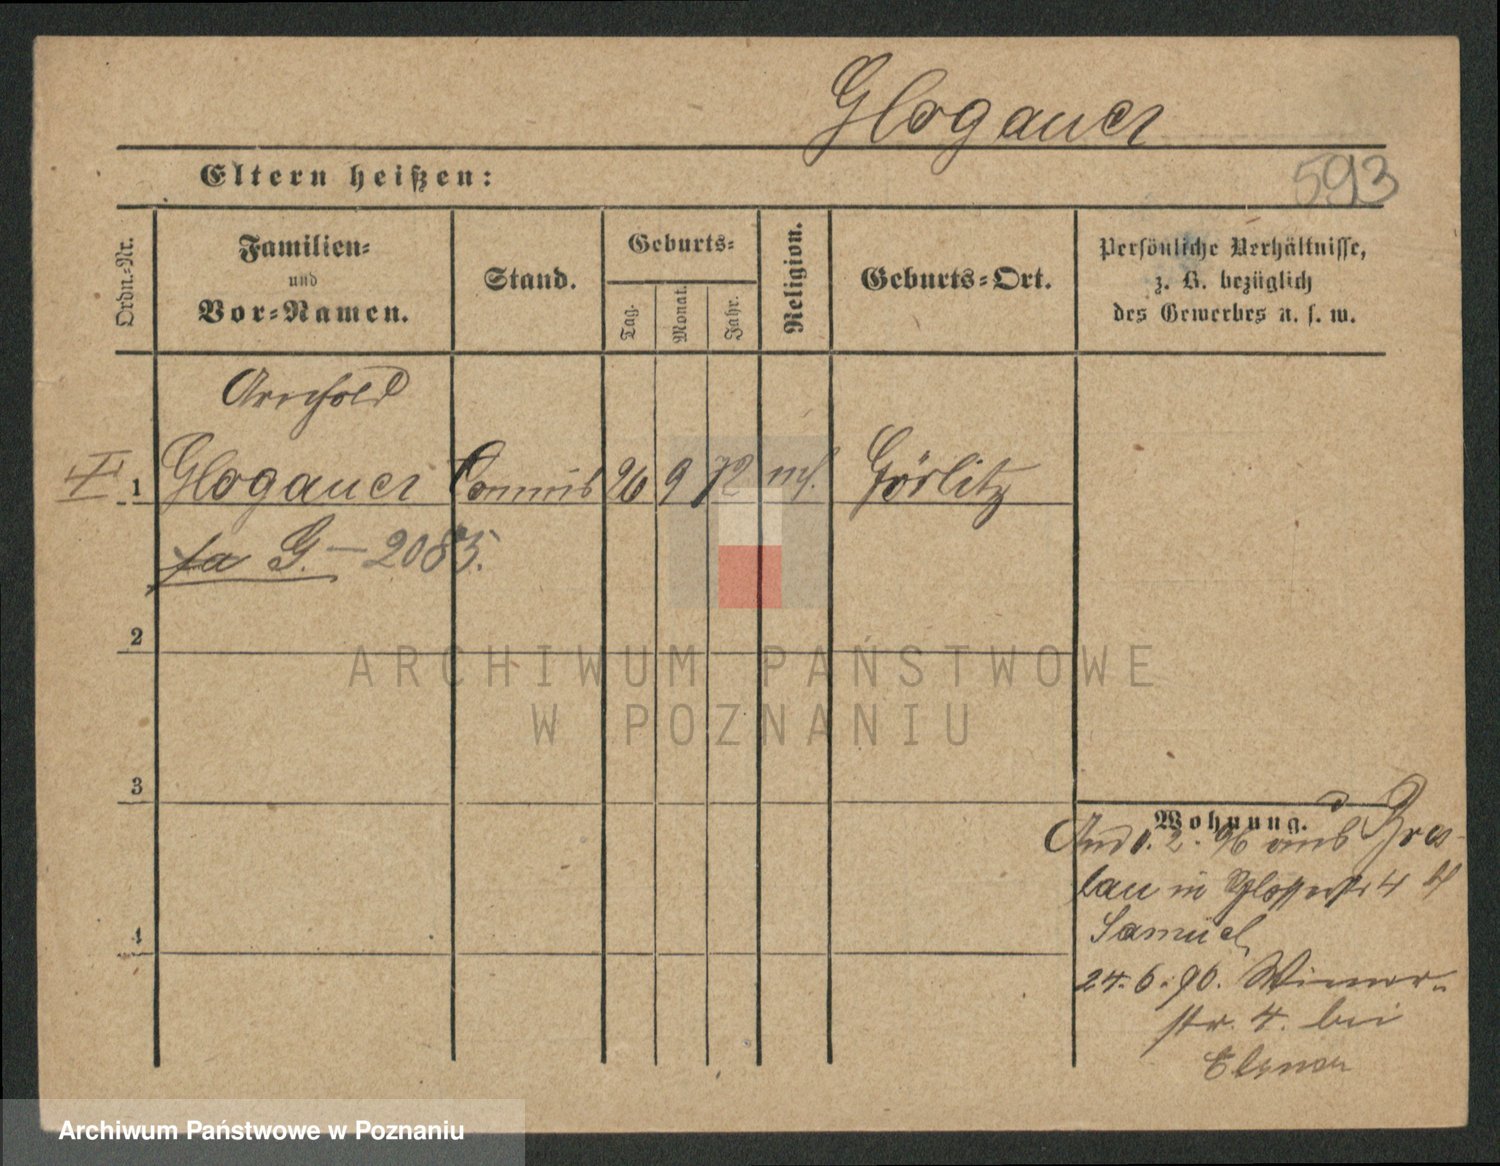 Glogauer
593
Eltern heißen:
Ordn.-Nr.
Familien-
und
Vor-Namen.
Stand.
Geburts-
Tag.
Monat.
Jahr.
Religion.
Geburts-Ort.
Persönliche Verhältnisse,
z. B. bezüglich
des Gewerbes u. s. w.
Arnhold
I 1 Glogauer Commis 26 9 72 Görlitz
fa G. - 2085.
2
ARCHIWUM PAŃSTWOWE
W POZNANIU
3
Wohnung.
2. 96 aus Bres-
lau in 4
Samuel
4
24. 6. 96.
str. 4. bei
Archiwum Państwowe w Poznaniu